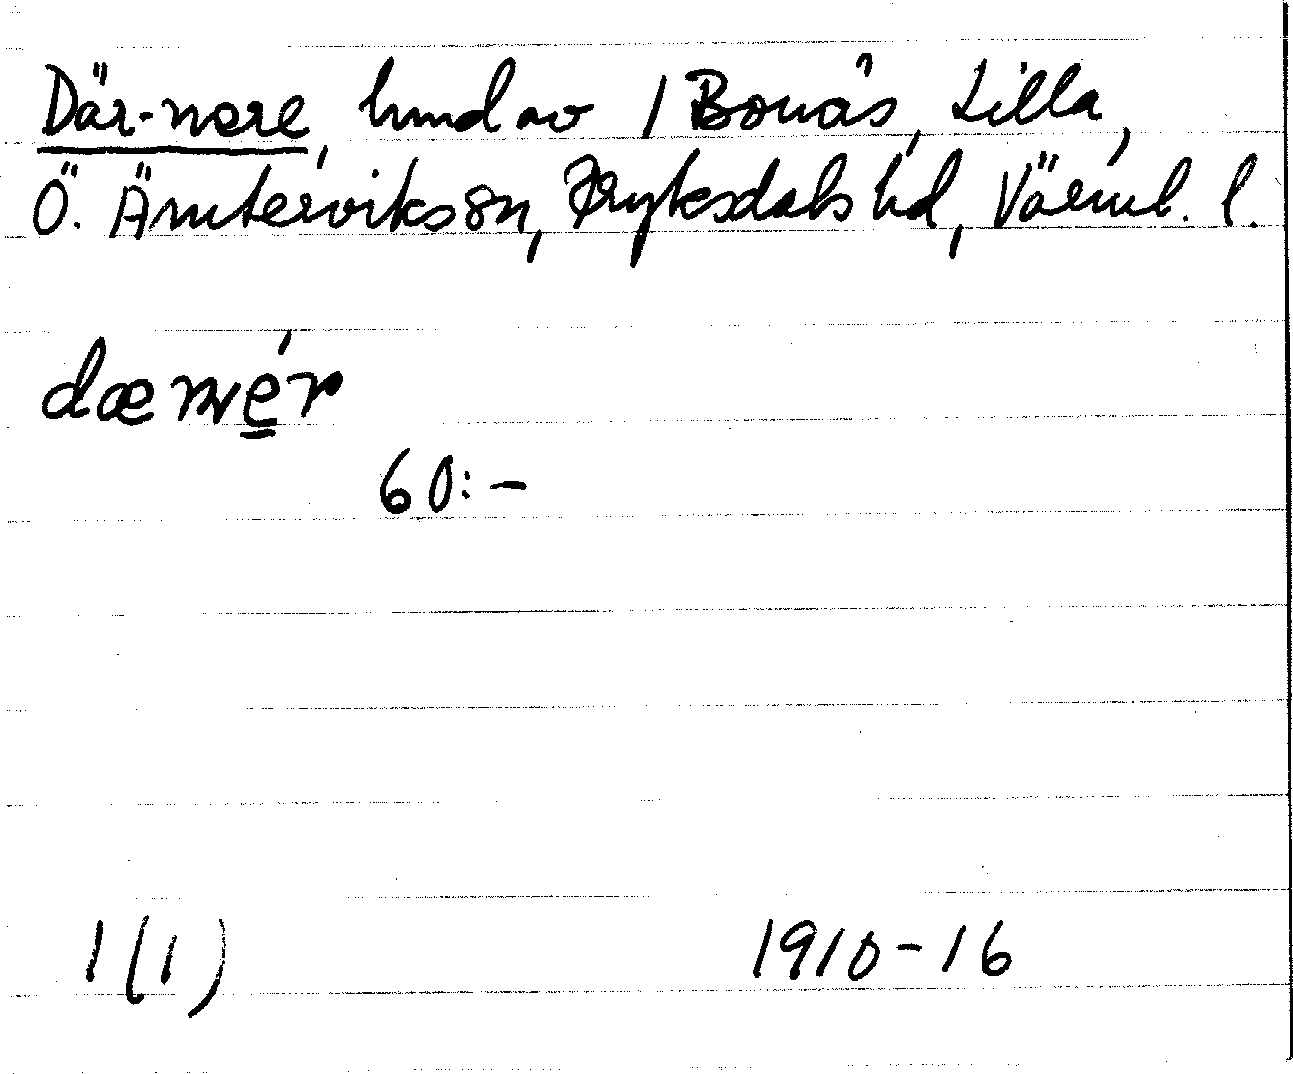 Där-nere, hmd av 1 Bonäs, Lilla,
Ö. Ämterviks sn, Fryksdals hd, Värml. l.
dæ nęr
60:-
1(1) 1910-16